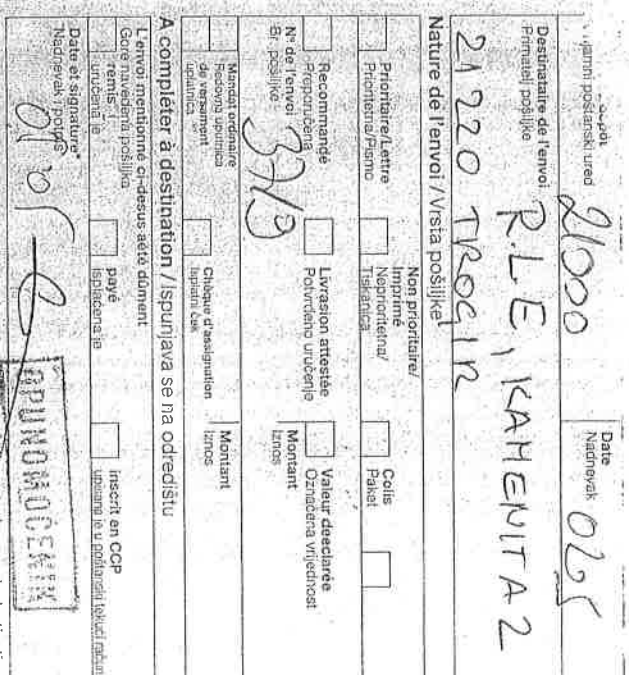 dépôt
Prijamni poštanski ured 21000
Date
Nadnevak 02 05
Destinataire de l'envoi
Primatelj pošiljke
R.L.E, KAMENITA 2
21220 TROGIR
Nature de l'envoi / Vrsta pošiljke
Prioritaire/Lettre
Prioritetna/Pismo
Non prioritaire/
Imprimé
Neprioritetna/
Tiskanica
Colis
Paket
Recommandé
Preporučena
Livrasion attestée
Potvrđeno uručenje
Valeur deeclarée
Označena vrijednost
N° de l'envoi
Br. pošiljke
3719
Montant
Iznos
Mandat ordinaire
Redovna uputnica
de versument
uplatnica
Chèque d'assignation
Isplatni ček
Montant
Iznos
A compléter à destination / Ispunjava se na odredištu
L'envoi mentionné ci-desus aété dûment
Gore navedena pošiljka
remis
uručena je
payé
isplaćena je
inscrit en CCP
upisana je u poštanski tekući račun
Date et signature*
Nadnevak i potpis
OPUNOMOĆENIK